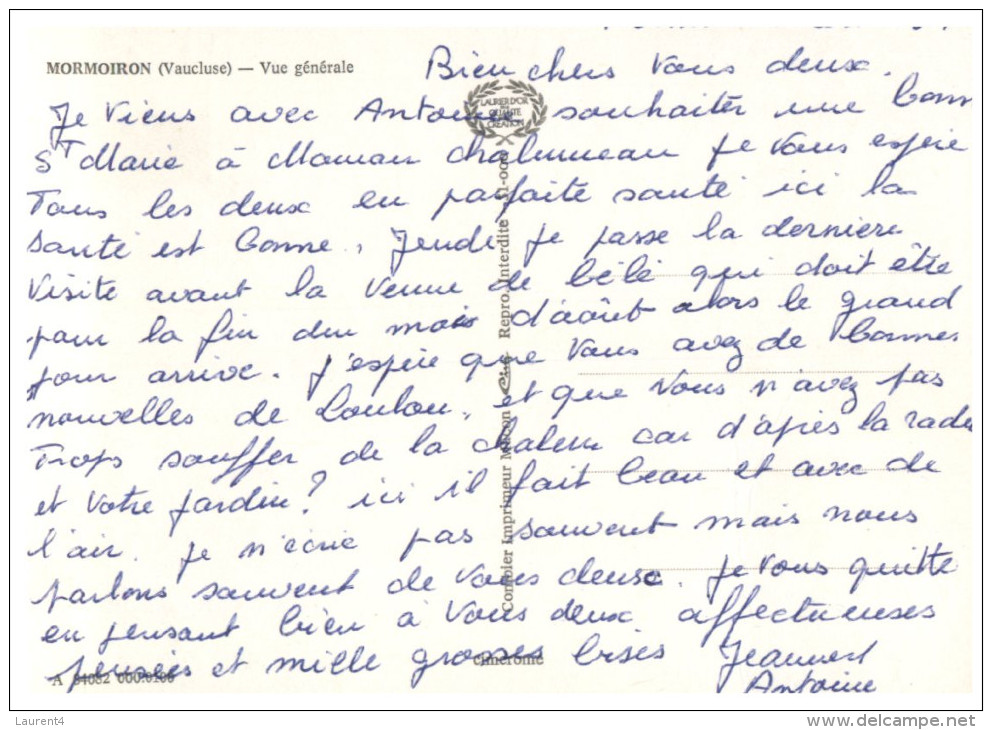 MORMOIRON (Vaucluse) — Vue générale
Bien chers vous deux.
Je viens avec Antoine souhaiter une bonne
Ste Marie à Maman chalumeau je vous espère
Tous les deux en parfaite santé ici la
santé est bonne, Jeudi je passe la dernière
visite avant la venue de bébé qui doit être
pour la fin du mois d'août alors le grand
jour arrive. j'espère que vous avez de bonnes
nouvelles de Loulou, et que vous n'avez pas
Trop souffer de la chaleur car d'après la radio
et votre jardin? ici il fait beau et avec de
l'air. je n'écrie pas souvent mais nous
parlons souvent de vous deux. je vous quitte
en pensant bien à vous deux affectueuses
pensées et mille grosses bises
Antoine
LAURIER D'OR
QUALITÉ
CREATION
Combier Imprimeur Macon
Repro. Interdite
cimcrome
A 84082 000.0200
Laurent4
www.delcampe.net